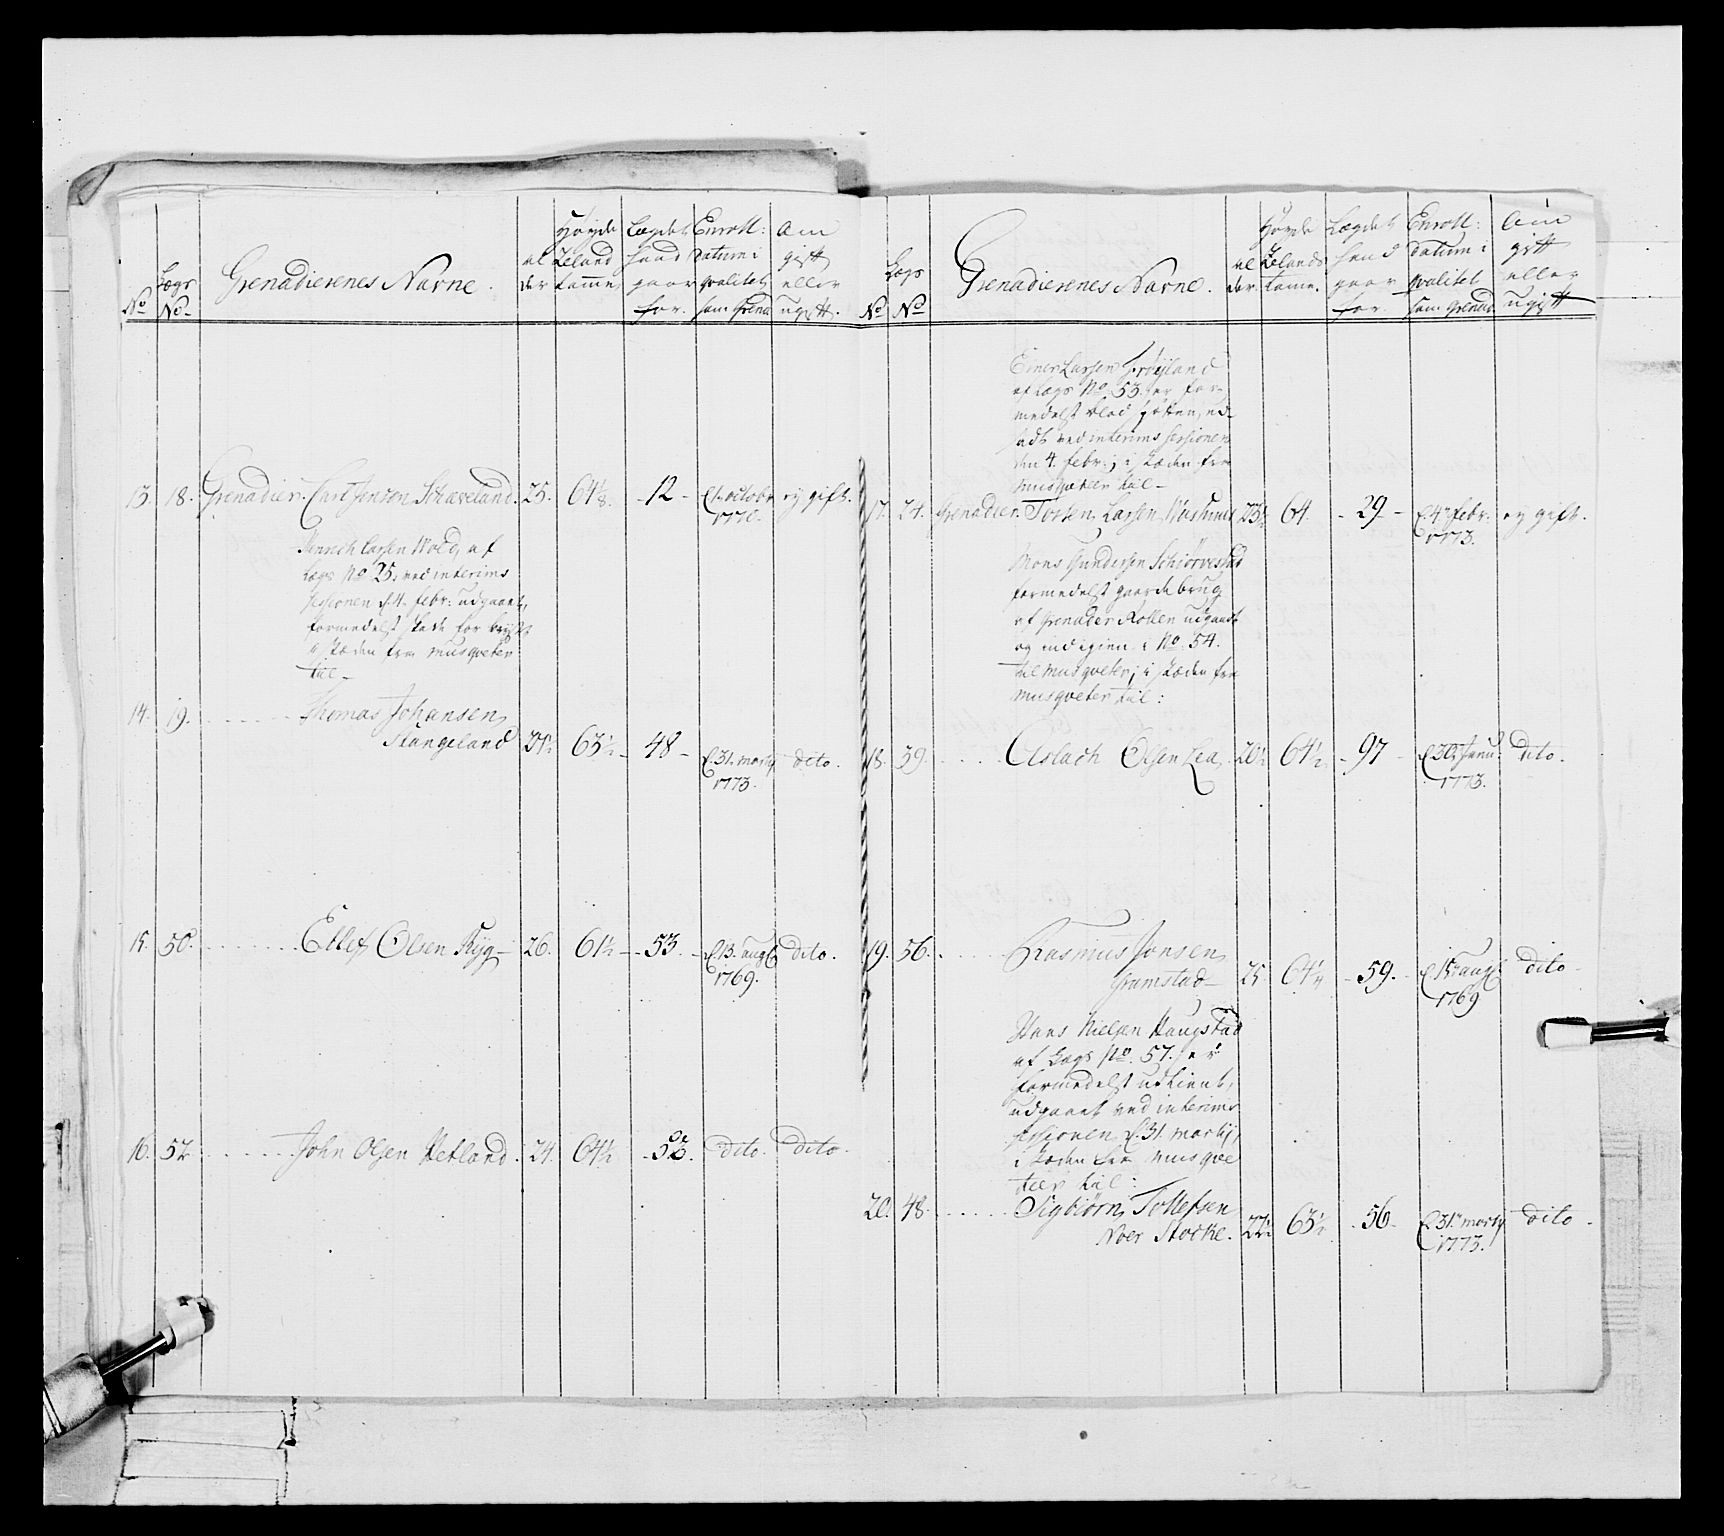 No
Lægs No
Grenadierenes Navne.
al der
Høyde Zeland tomme
Lægdet hand gaar for.
Enroll: datum i qvalitet som Grenad
Om gift eller ugift.
13. 18. Grenadier. Carl Jensen Schaveland. 25. 64 1/8. - 12 - d. 1. octobr 1770. ey gift.
Hennich Larsen Wold, af
Lægs No 25. ved interims
sessionen d. 4. febr: udgaaet,
formedelst skade for bryst
i stæden fra musqveter
til -
14. 19. Thomas Johansen
Stangeland 21 1/2 63 1/2 - 48 - d. 31. marty 1773. dito.
15. 50. Ellef Olsen Ryg - 26. 61 1/2 - 53. - d. 13. augs 1769. dito.
16. 52 John Olsen Hetland. 24. 64 1/2 dito. dito.
No
Lægs No
Grenadierenes Navne.
al der.
Høyde Zelands tome.
Lægdet hand gaar for.
Enroll: datum i qvalitet som Grenad
Om gift eller ugift
Einer Larsen Frøyland
af Lægs No. 53. er for-
medelst blod spÿtten, ud-
sadt ved interims sessionen
den 4. febr:, i stæden fra
musqveteer til -
17. 24. Grenadier. Torsten Larsen 23 1/2 64. - 29 - d. 4. febr: 1773. ey gift.
Mons Gundersen Schiørvestad
formedelst gaarde brug
af Grenader Rollen udgaaet
og ind igien i No. 54.
til musqveter; i stæden fra
musqveter til:
18. 39. Aslach Olsen Lea. 20 1/2 64 1/2 - 97 - d. 30. Janu. 1773. dito.
19. 56. Rasmus Jonsen
Gramstad - 25. 64 1/4 - 59. - d. 15. augs 1769 dito -
Hans Nielsen Haugstad
af Lægs No. 57. er
formedelst udtient,
udgaaet ved interims
sessionen d. 31. marty,
i stæden fra musqve
teer til:
20. 48. Sigbiørn Tollefsen
Noer Stocke. 22 1/2 63 1/2 - 56 - d. 31. marty 1773. dito -